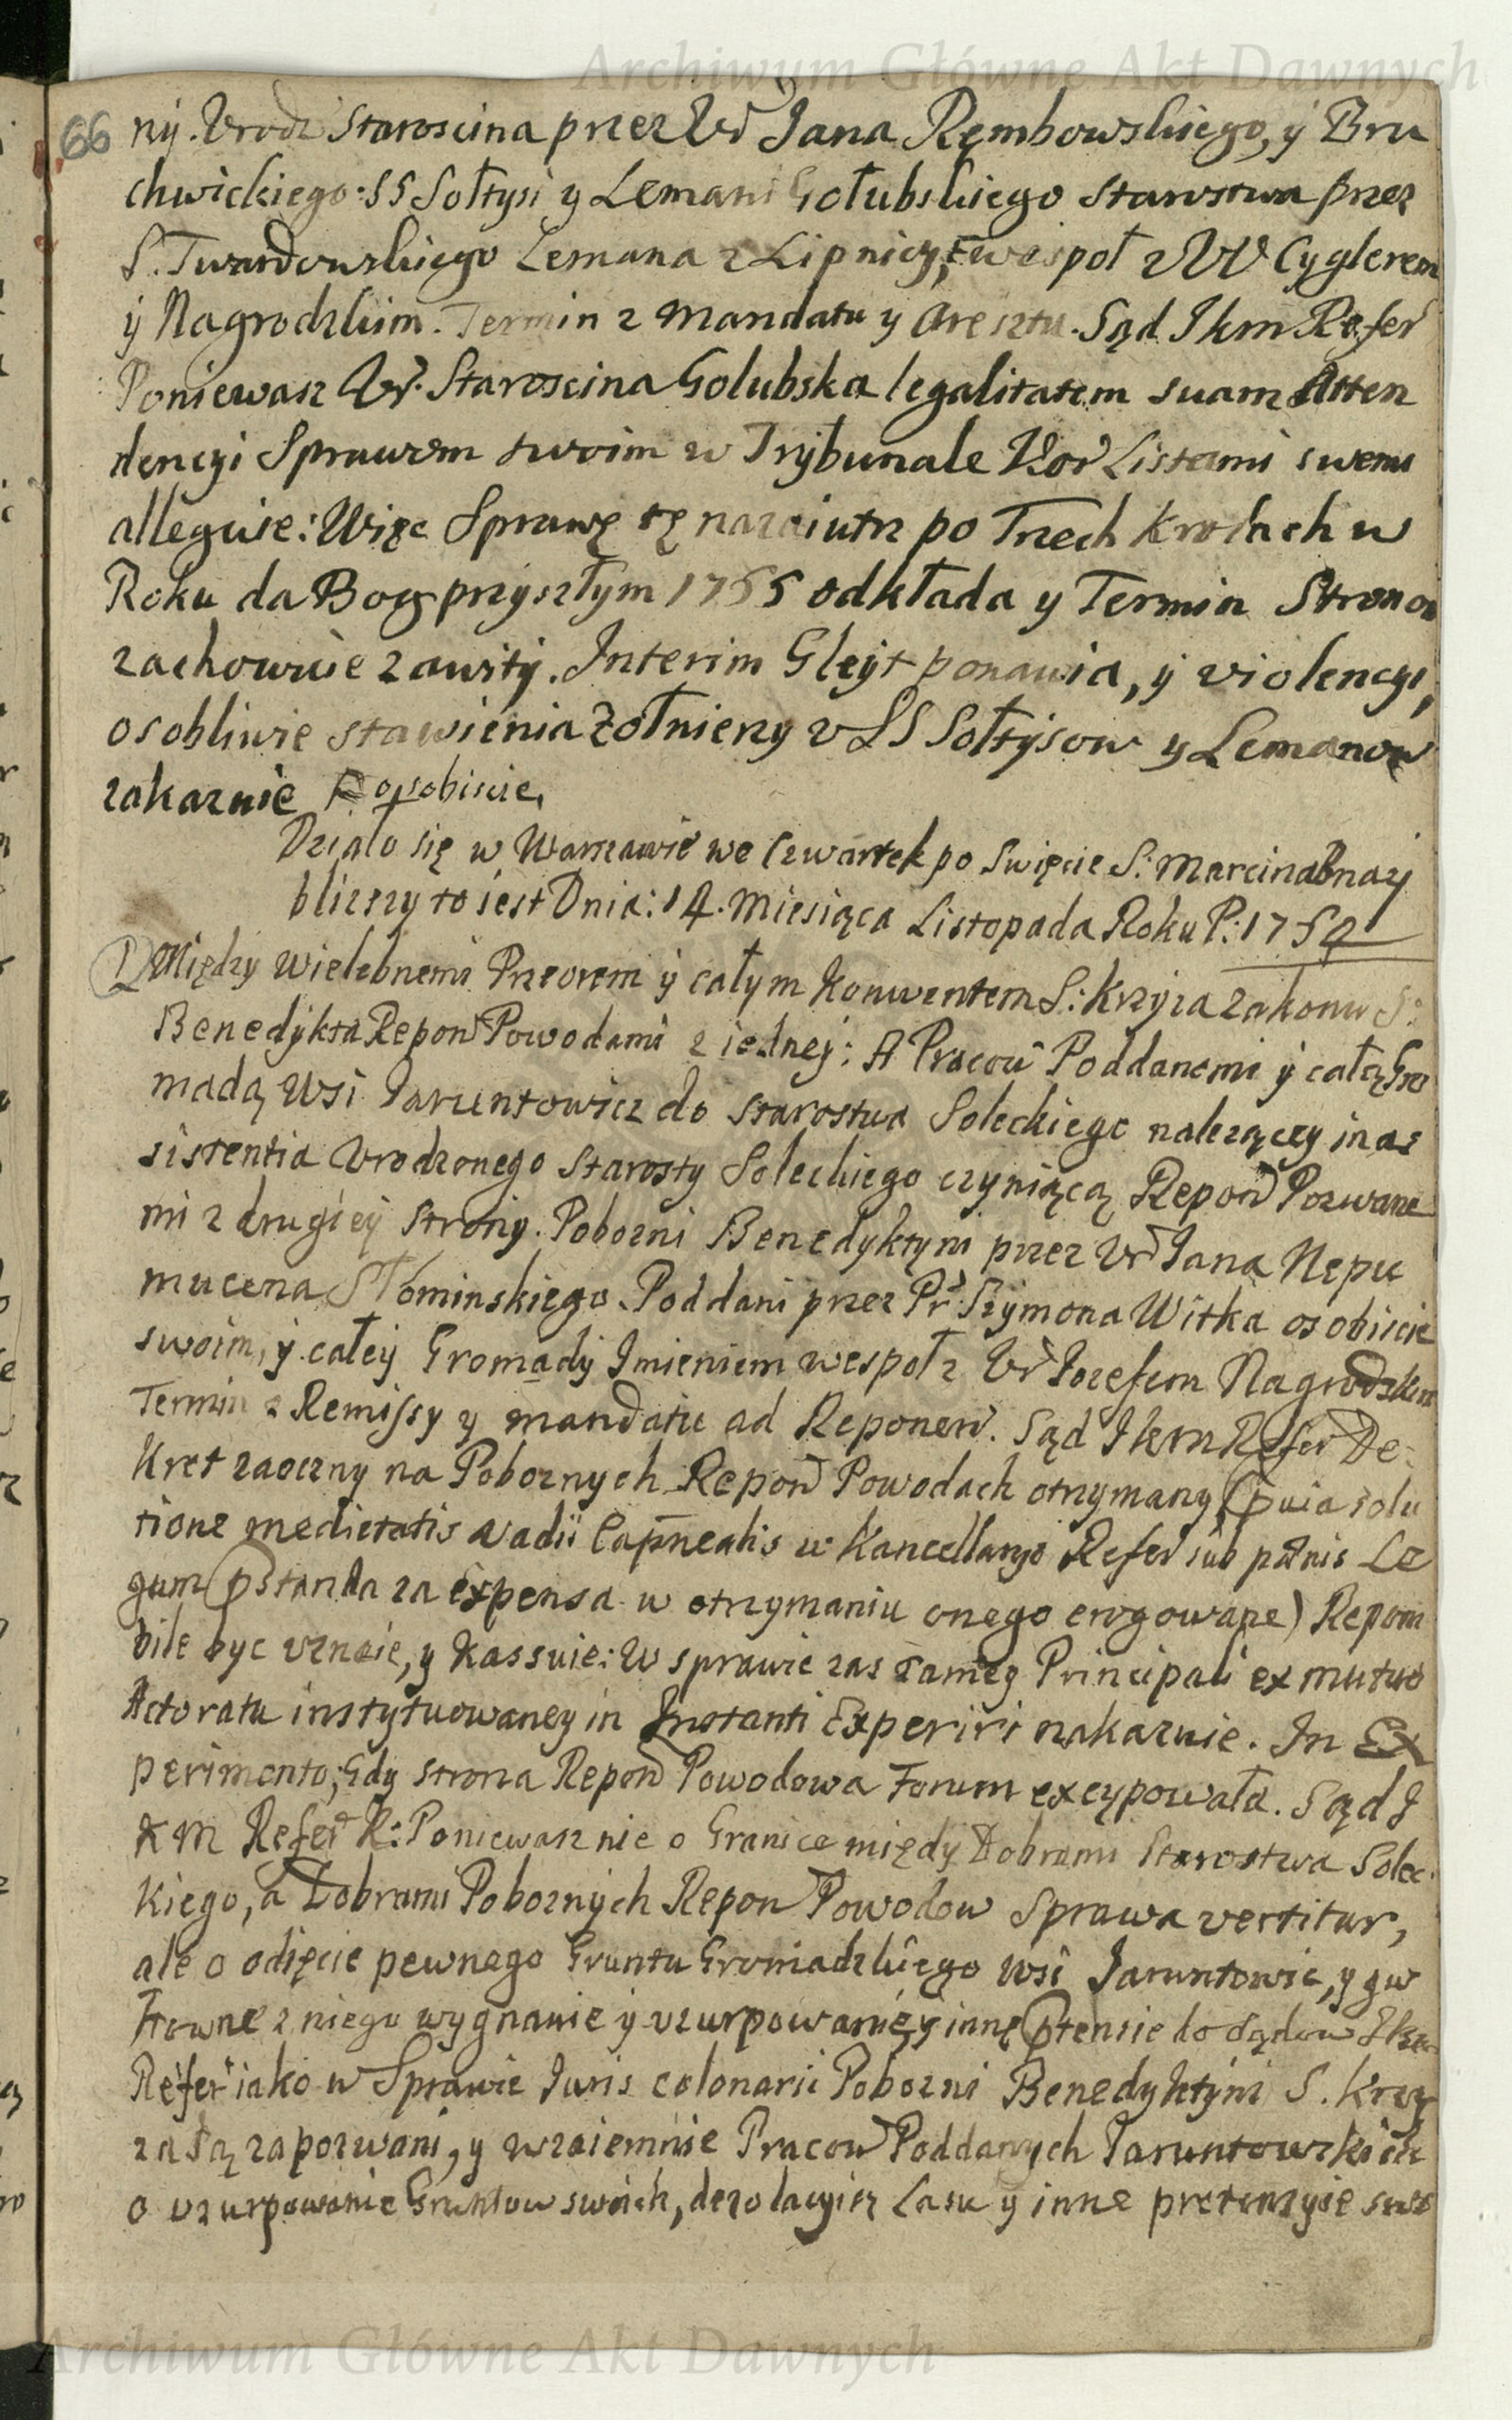 Archiwum Główne Akt Dawnych
66
ny. Urodź Staroscina przez Ur Jana Rembowskiego, y Bru
chwickiego: SS Sołtysi y Lemani Gołubskiego Starostwa przez
S. Twardowskiego Lemana z Lipnicy, wespoł z UU Cyglerem
y Nagrodzkim. Termin z Mandatu y Aresztu. Sąd Jkm Refer
Poniewasz Ur. Staroscina Golubska legalitatem suam Atten
dencyi Sprawom swoim w Trybunale Kor Listami swemi
alleguie: Więc Sprawę tę nazaiutrz po Trzech Krolach w
Roku da Bog przyszłym 1755 odkłada y Termin Stronom
zachowuie zawity. Interim Gleyt ponawia, y violencyi,
osobliwie stawienia Zołnierzy u SS Sołtysow y Lemanow
zakazuie osobiscie.
Działo się w Warszawie we Czwartek po Swięcie S: Marcina B nay
blizszy to iest Dnia: 14. Miesiąca Listopada Roku P: 1754
Między Wielebnemi Przeorem y całym Konwentem S: Krzyza Zakonu S:
Benedykta Repon Powodami z iedney: A Pracow Poddanemi y całą Gro
madą Wsi Jaruntowicz do Starostwa Soleckiego nalezącey in as
sistentia Urodzonego Starosty Soleckiego czyniącą Repon Pozwane
mi z drugiey Strony. Pobozni Benedyktyni przez Ur Jana Nepu
mucena Słominskiego. Poddani przez Pr Szymona Witka osobiscie
swoim, y całey Gromady Jmieniem wespoł z Ur Jozefem Nagrodzkim
Termin z Remissy y mandatu ad Reponen. Sąd Jkm Refer De
kret zaoczny na Poboznych Repon Powodach otrzymany (pvia solu
tione medietatis vadii Capnealis w Kancellaryi Refer sub pœnis Le
gum pstanda za expensa w otrzymaniu onego erogowane) Reponi
bile byc uznaie, y Kassuie: W sprawie zas samey Principali ex mutuo
Actoratu instytuowaney in Instanti Experiri nakazuie. In Ex
perimento, Gdy Strona Repon Powodowa Forum excypowała. Sąd J
K M Refer K: Poniewasz nie o Granice między Dobrami Starostwa Solec
kiego, a Dobrami Poboznych Repon Powodow Sprawa vertitur,
ale o odięcie pewnego Gruntu Gromadzkiego Wsi Jaruntowic, y gw
łtowne z niego wygnanie y uzurpowanie, y inne ptensie do Sądow Jkm
Refer iako w Sprawie Juris colonarii Pobozni Benedyktyni S. Krzy
za są zapozwani, y wzaiemnie Pracow Poddanych Jaruntowskich
o uzurpowanie Gruntow swoich, dezolacyią Lasu y inne pretensyie swo
Archiwum Główne Akt Dawnych